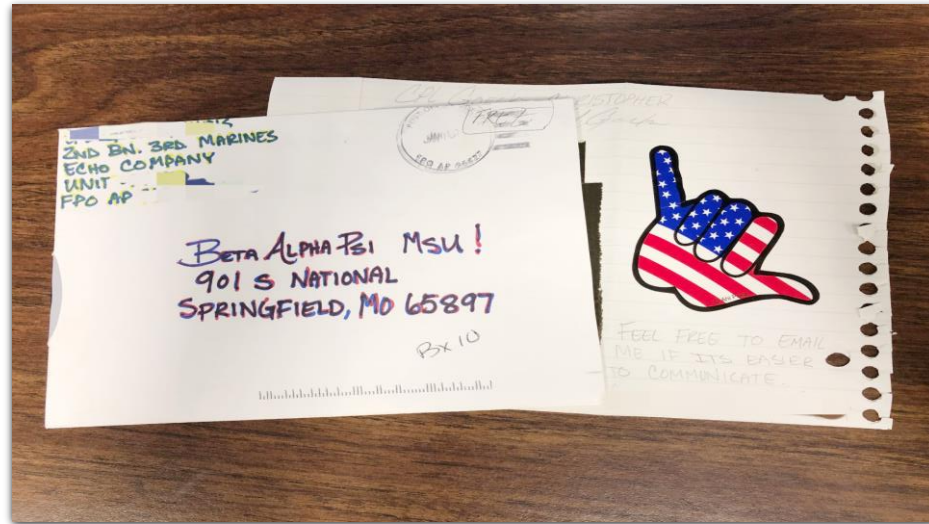 2ND BN. 3RD MARINES
ECHO COMPANY
UNIT
FPO AP
FREE
JAN
BETA ALPHA PSI MSU!
901 S NATIONAL
SPRINGFIELD, MO 65897
BX 10
CPL
FEEL FREE TO EMAIL
ME IF ITS EASIER
TO COMMUNICATE.